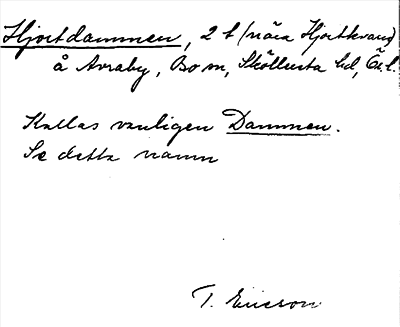 Hjortdammen, 2 t (nära Hjortkvarn)
å Avraby, Bo sn, Sköllersta hd, Ör. l.
Kallas vanligen Dammen.
Se detta namn
T. Ericson